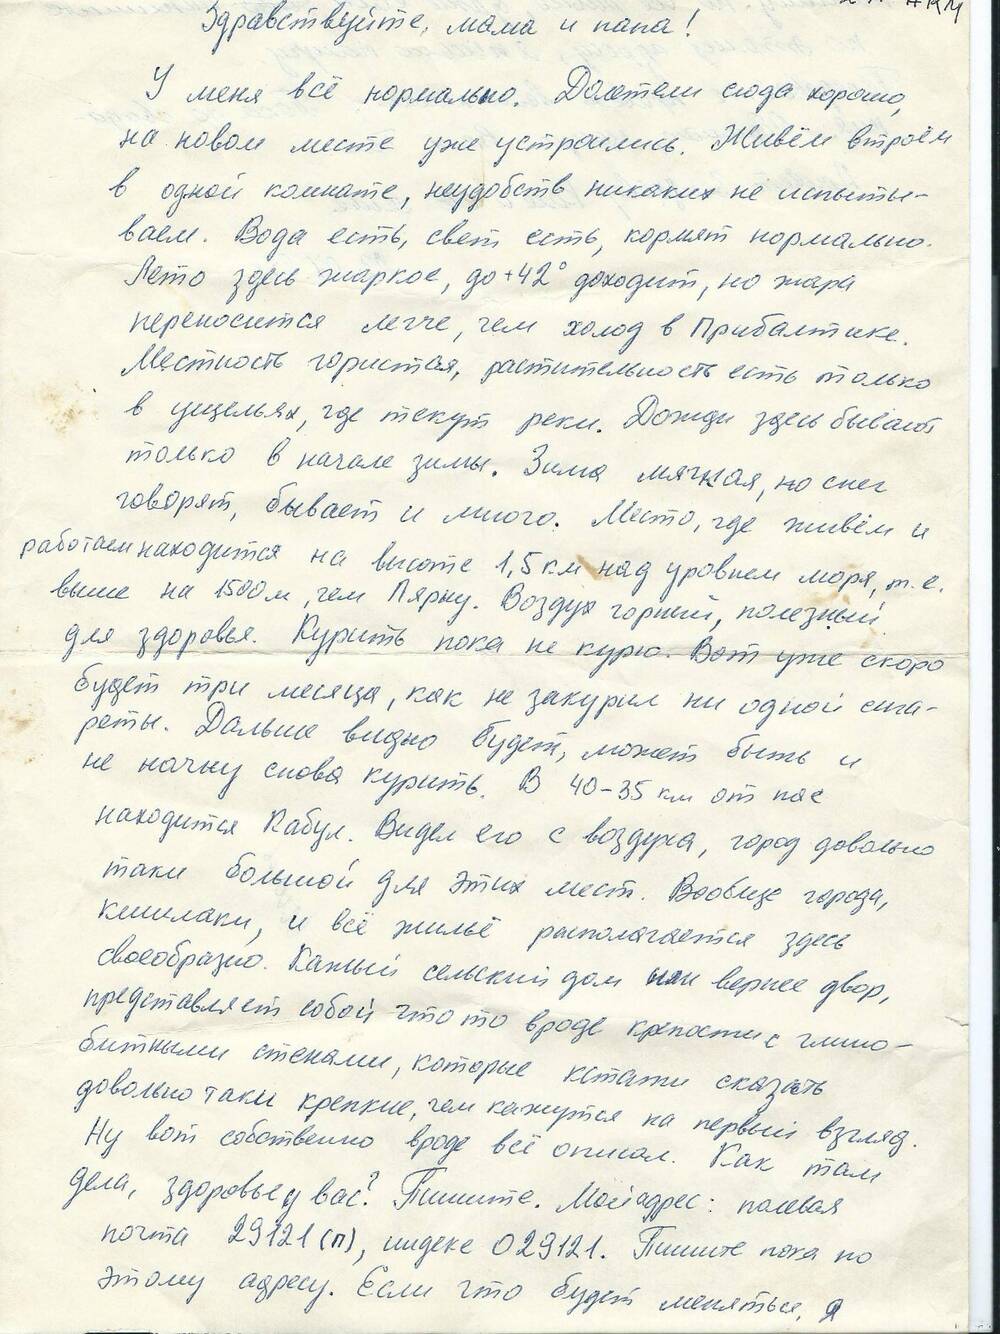 Здравствуйте, мама и папа!
У меня всё нормально. Долетели сюда хорошо,
на новом месте уже устроились. Живём втроём
в одной комнате, неудобств никаких не испыты-
ваем. Вода есть, свет есть, кормят нормально.
Лето здесь жаркое, до +42° доходит, но жара
переносится легче, чем холод в Прибалтике.
Местность гористая, растительность есть только
в ущельях, где текут реки. Дожди здесь бывают
только в начале зимы. Зима мягкая, но снег
говорят, бывает и много. Место, где живём и
работаем находится на высоте 1,5 км над уровнем моря, т.е.
выше на 1500 м, чем Пярну. Воздух горный, полезный
для здоровья. Курить пока не курю. Вот уже скоро
будет три месяца, как не закурил ни одной сига-
реты. Дальше видно будет, может быть и
не начну снова курить. В 40-35 км от нас
находится Кабул. Видел его с воздуха, город довольно
таки большой для этих мест. Вообще города,
кишлаки, и всё жильё располагается здесь
своеобразно. Кажый сельский дом или вернее двор,
представляет собой что то вроде крепости с глино-
битными стенами, которые кстати сказать
довольно таки крепкие, чем кажутся на первый взгляд.
Ну вот собственно вроде всё описал. Как там
дела, здоровье у вас? Пишите. Мой адрес: полевая
почта 29121 (П), индекс 029121. Пишите пока по
этому адресу. Если что будет меняться, я